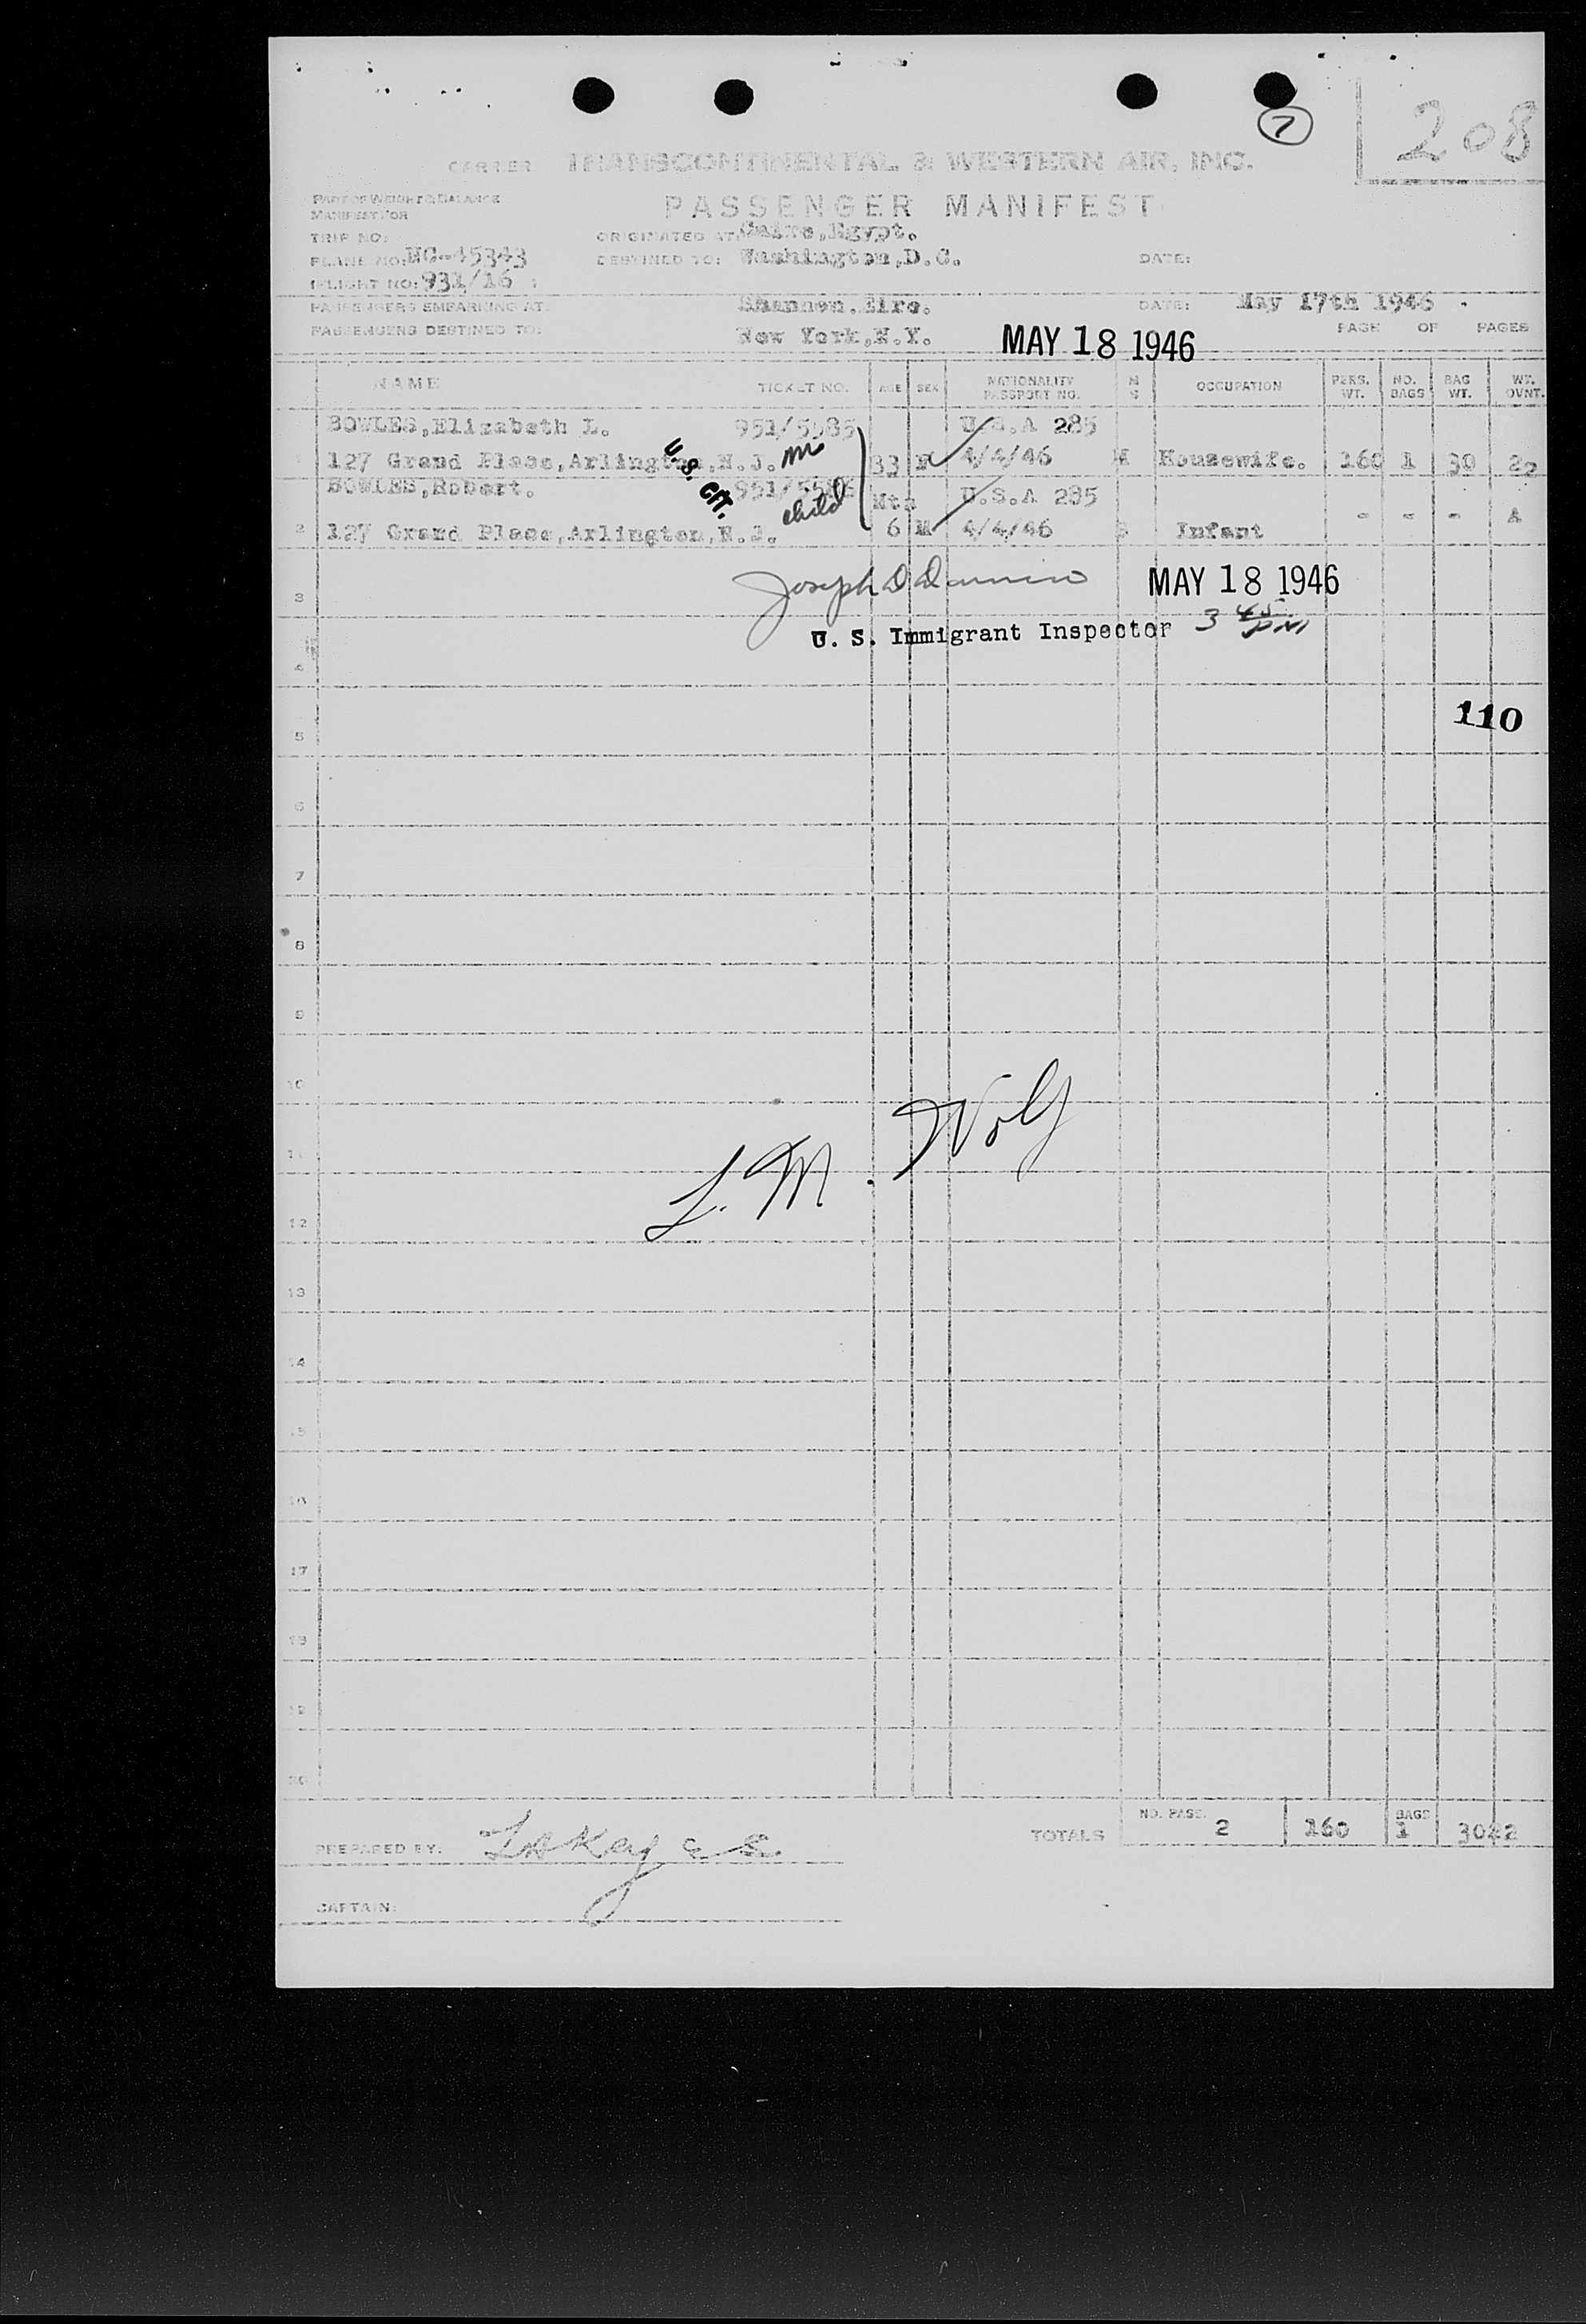 7
208
CARRIER TRANSCONTINENTAL & WESTERN AIR, INC.
PART OF WEIGHT & BALANCE
MANIFEST FOR
PASSENGER MANIFEST
TRIP NO: ORIGINATED AT: Cairo,Egypt.
PLANE NO: NC-45343 DESTINED TO: Washington,D.C. DATE:
FLIGHT NO: 931/16
PASSENGERS EMBARKING AT: Shannon.Eire. DATE: May 17th 1946 .
PASSENGERS DESTINED TO: New York,N.Y. MAY 18 1946 PAGE OF PAGES
NAME TICKET NO. AGE SEX NATIONALITY PASSPORT NO. M S OCCUPATION PERS. WT. NO. BAGS BAG WT. WT. OVNT.
BOWLES,Elizabeth L. 951/5585 U.S.A 285
1 127 Grand Place,Arlington,N.J. 33 F 4/4/46 M Housewife. 160 1 30 22
U.S. CIT.
BOWLES,Robert. 951/ child Mts U.S.A 285
2 127 Grand Place,Arlington,N.J. 6 M 4/4/46 S Infant - - -
3 Joseph D MAY 18 1946
U. S. Immigrant Inspector 3 45 PM
4
110
5
6
7
8
9
10
L. M. Wolf
11
12
13
14
15
16
17
18
19
20
TOTALS NO. PASS. 2 160 BAGS 1 30 22
PREPARED BY:
CAPTAIN: